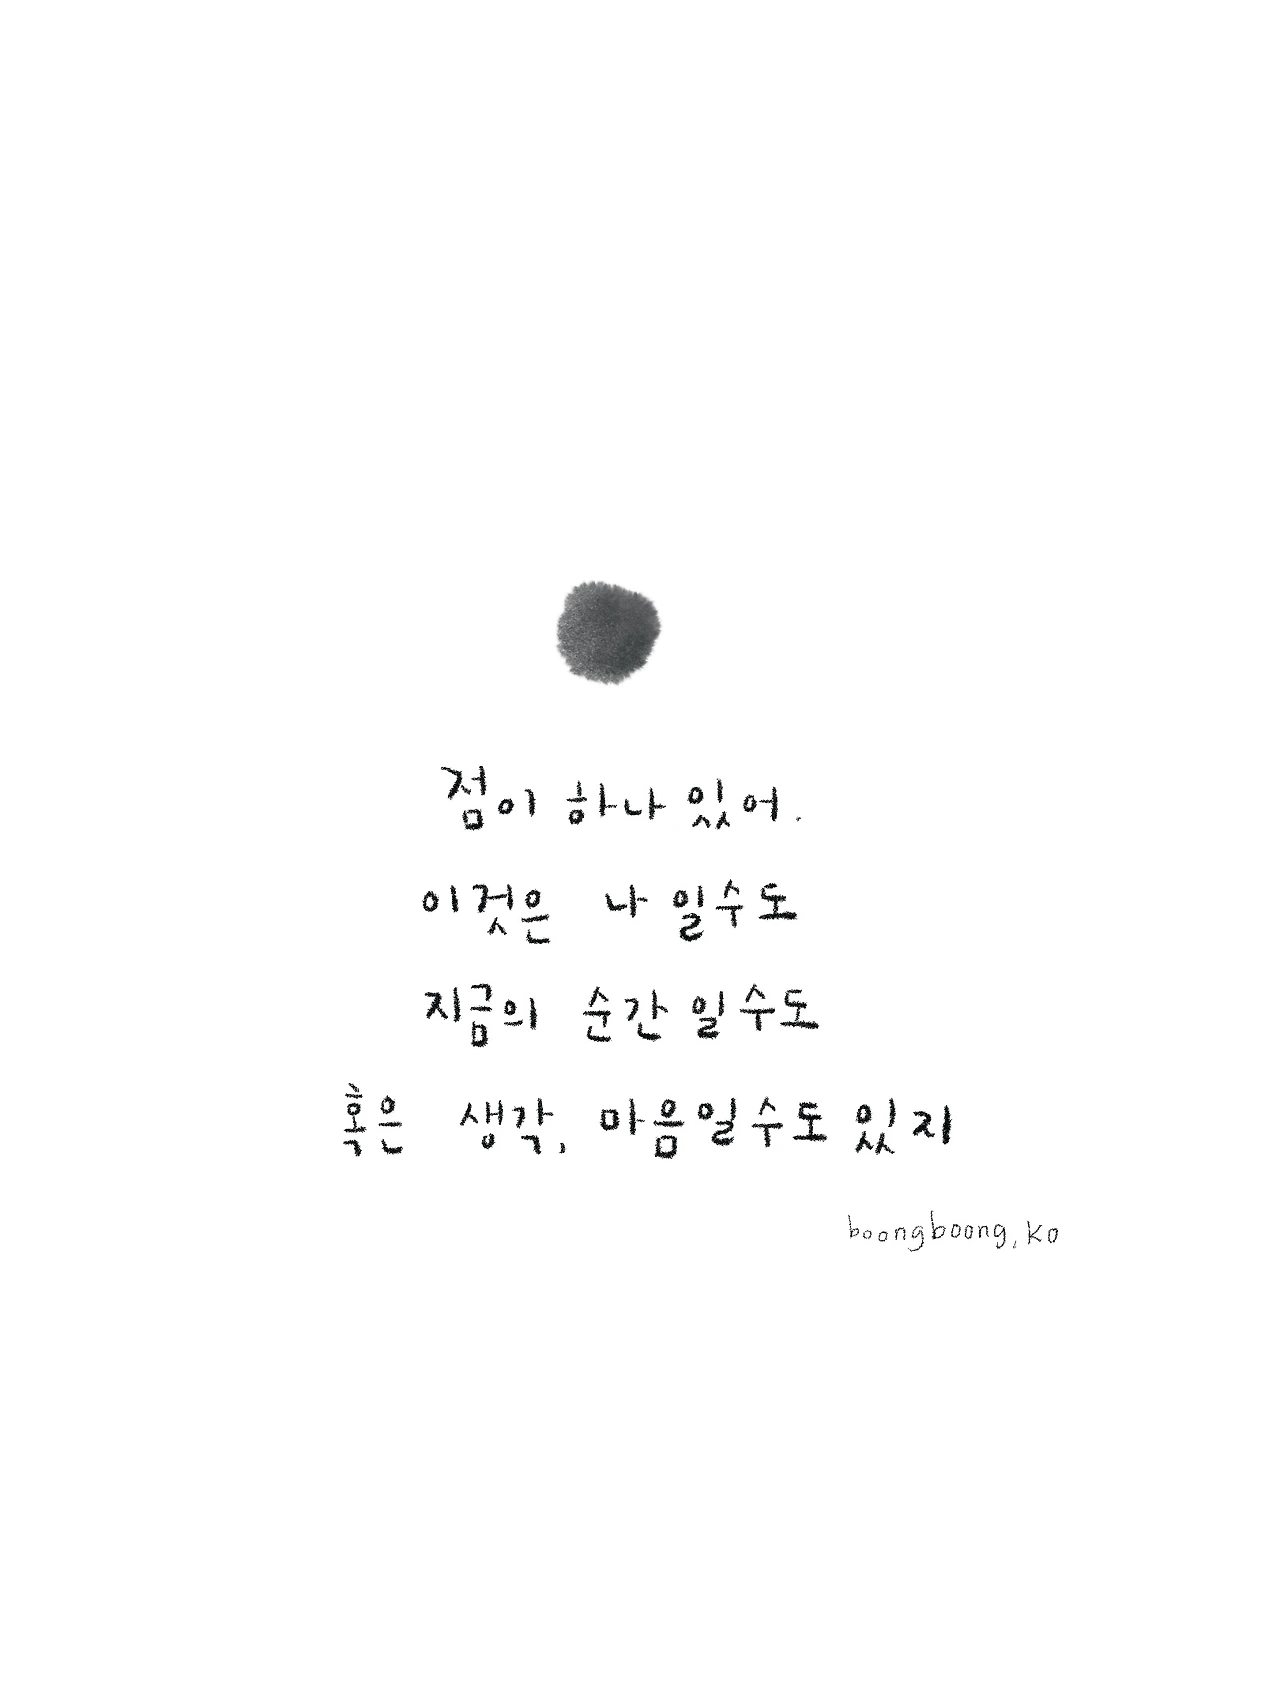 점이 하나 있어.
이것은 나 일수도
지금의 순간 일수도
혹은 생각, 마음일수도 있지
boongboong, ko